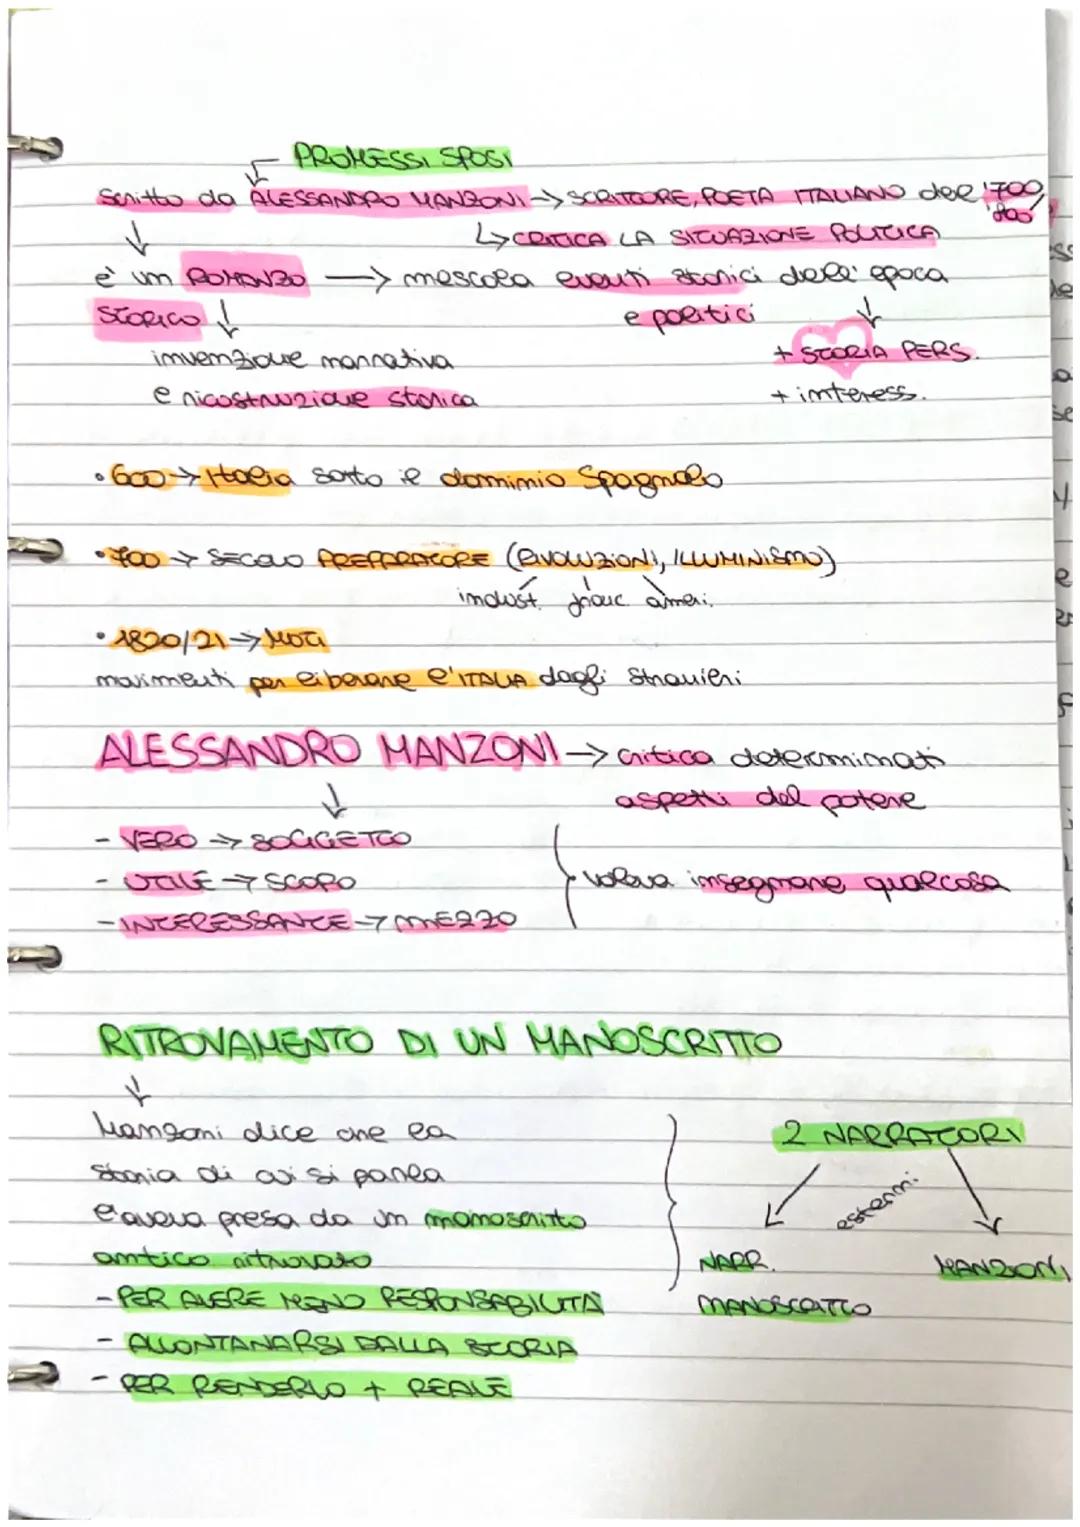 PROMESSI SPOSI
Scritto da ALESSANDRO MANZONI → SCRITTORE, POETA ITALIANO del '700
'800
↳ CRITICA LA SITUAZIONE POLITICA
è un ROMANZO → mescola eventi storici dell'epoca
STORICO
e politici
invenzione narrativa
+ STORIA PERS.
e ricostruzione storica
+ interess.
• 600 → Italia sotto il dominio Spagnolo
• 700 → SECOLO PREPARATORE (RIVOLUZIONI, ILLUMINISMO)
indust. franc ameri.
• 1820/21 → MOTI
movimenti per liberare l'ITALIA dagli stranieri
ALESSANDRO MANZONI → critica determinati
aspetti del potere
- VERO → SOGGETTO
- UTILE → SCOPO
volava insegnare qualcosa
- INTERESSANTE → MEZZO
RITROVAMENTO DI UN MANOSCRITTO
Manzoni dice che la
2 NARRATORI
storia di cui si parla
esterni.
l'aveva presa da un manoscritto
antico ritrovato
NARR.
MANZONI
- PER AVERE MENO RESPONSABILITÀ
MANOSCRITTO
- ALLONTANARSI DALLA STORIA
- PER RENDERLO + REALE